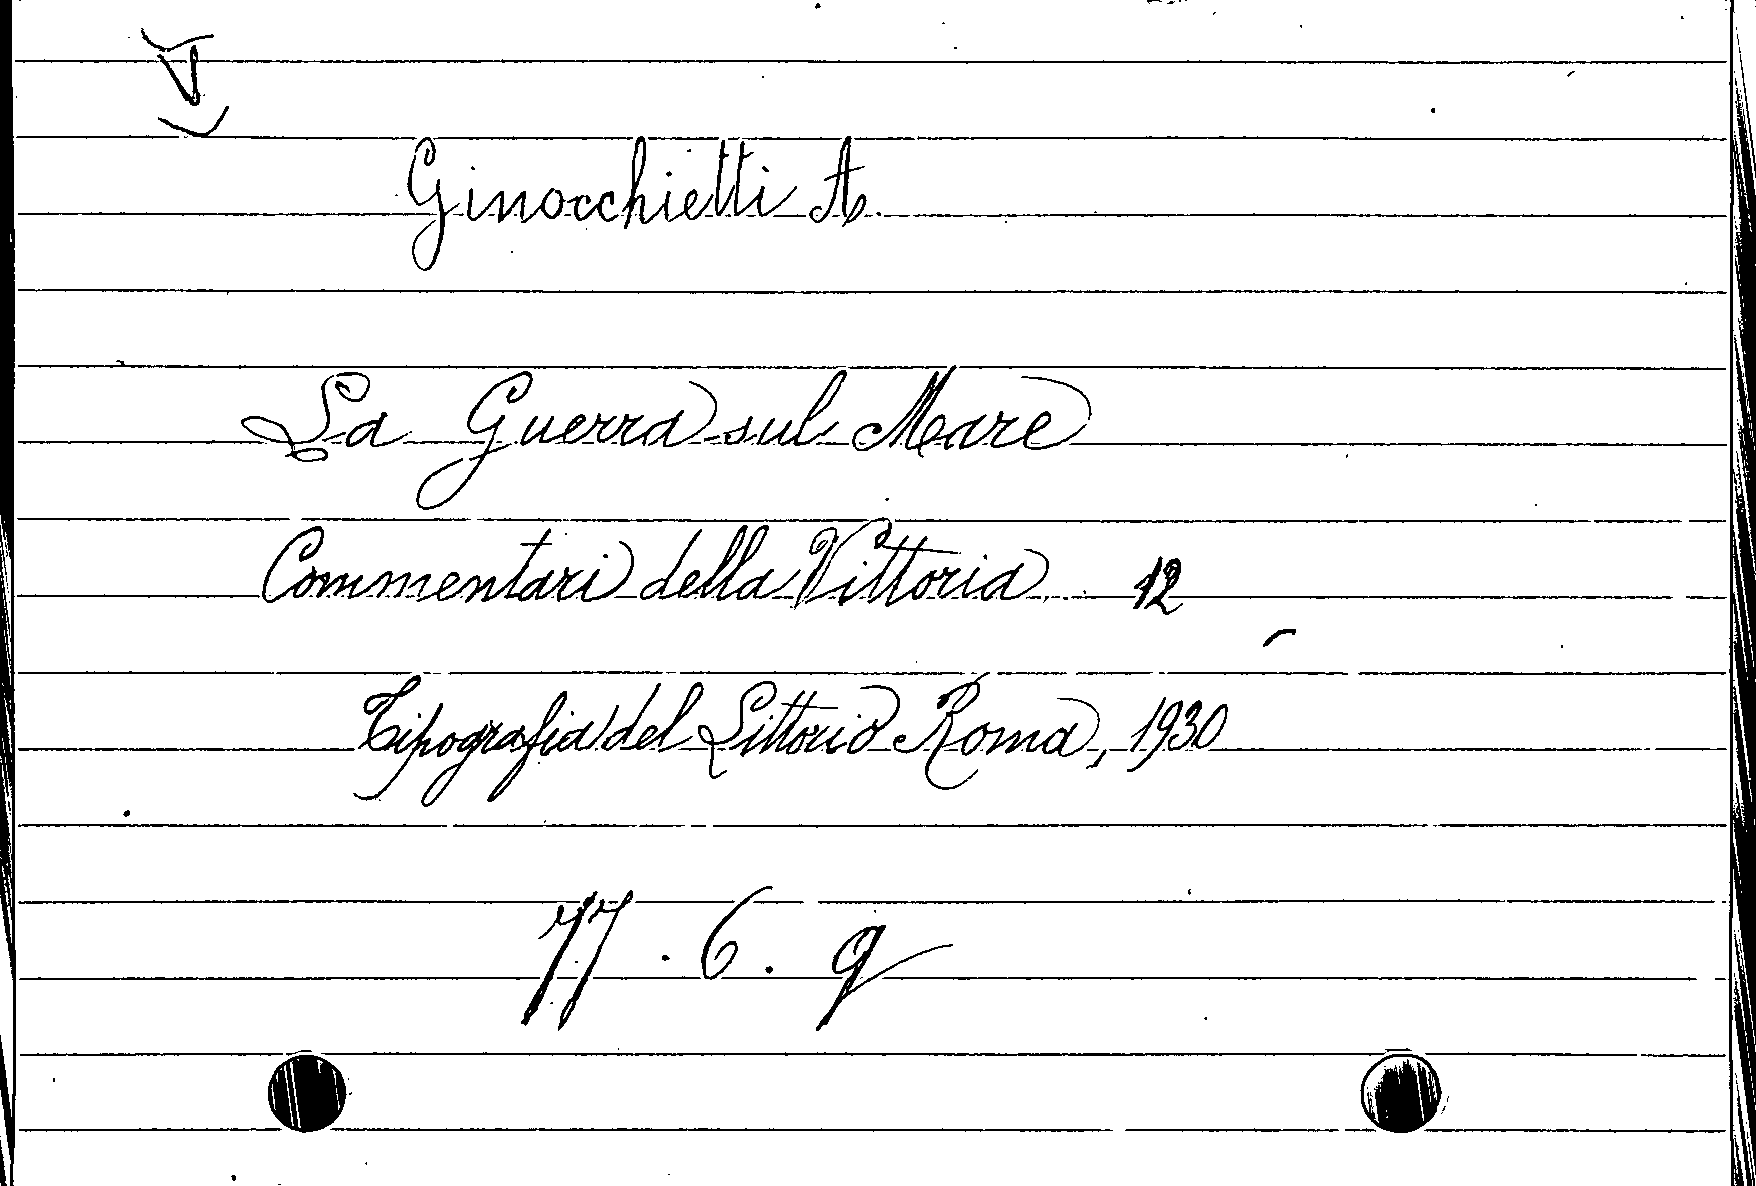 V
Ginocchietti A.
La Guerra sul Mare
Commentari della Vittoria 12
Tipografia del Littorio Roma, 1930
77.6.9